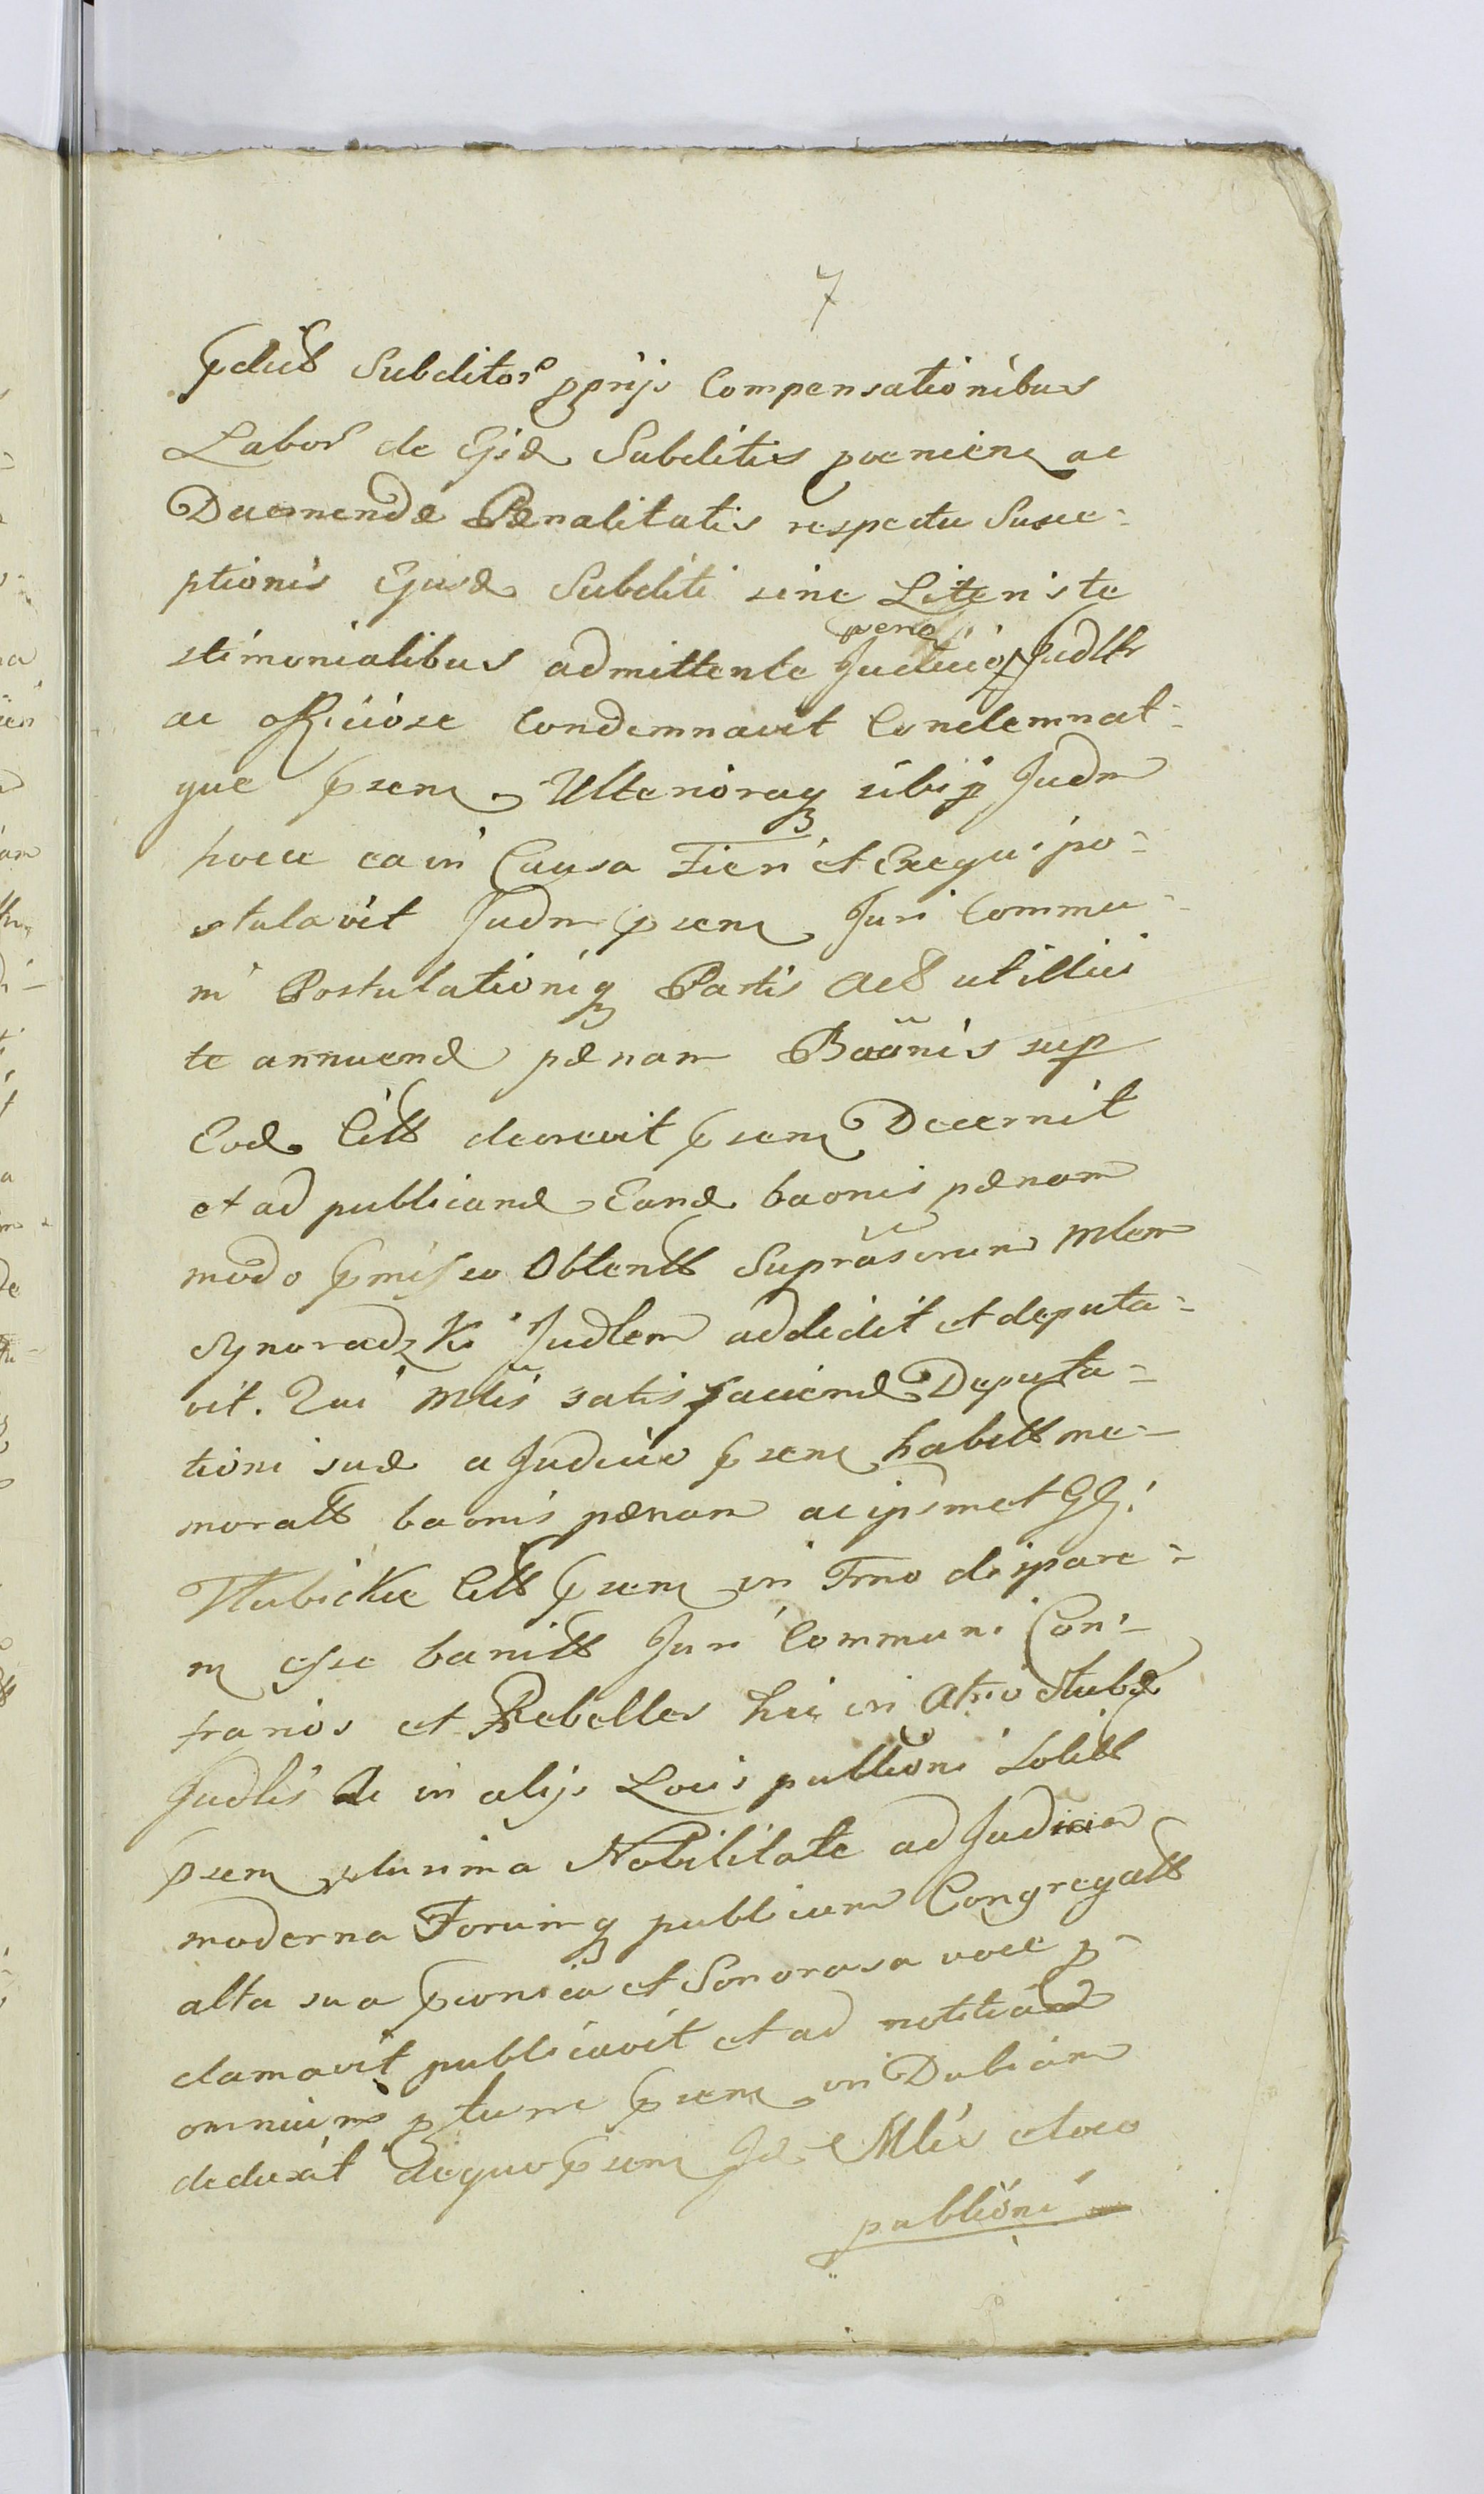 7
Subditor pprijs Compensationibus
Labor de Subditis ac
Decernendæ Pænalitatis respectu Susce-
ptionis Ejusd Subditi sine Literis te
stimonialibus admittente Judicio Judltr
ac officiose Condemnavit Condemnat-
que psem Ulterioraq sibi p Judm
hocce ea in Causa Fieri et Exequi po-
stulavit Judm psem Juri Commu-
ni Postulationiq Partis Act ut illici
te annuend pænam Baõnis sup
Eod Citt decrevit psem Decernit
et ad publicand Eand baonis pænam
modo pmisso Obtentt Suprãscrum Mlem
Synoradzki Judlem addidit et deputa-
vit. Qui Mlis satisfaciend Deputa-
tioni suæ a Judicio psem habitt me-
moratt baonis pænam ac ipsmet GG:
Citt psem in Trno dispare-
m esse banitt Juri Communi Con-
trarios et Rebelles hic in Atrio Stubæ
Judlis Ac in alijs Locis publõni Solitt
psem plurima Nobilitate ad Judicia
moderna Forumq publicum Congregatt
alta sua et Sonorosa voce p-
clamavit publicavit et ad notitiam
omnium ptunc psem in Dubiam
deduxit de quo psem Id Mlis et oco
publiõni